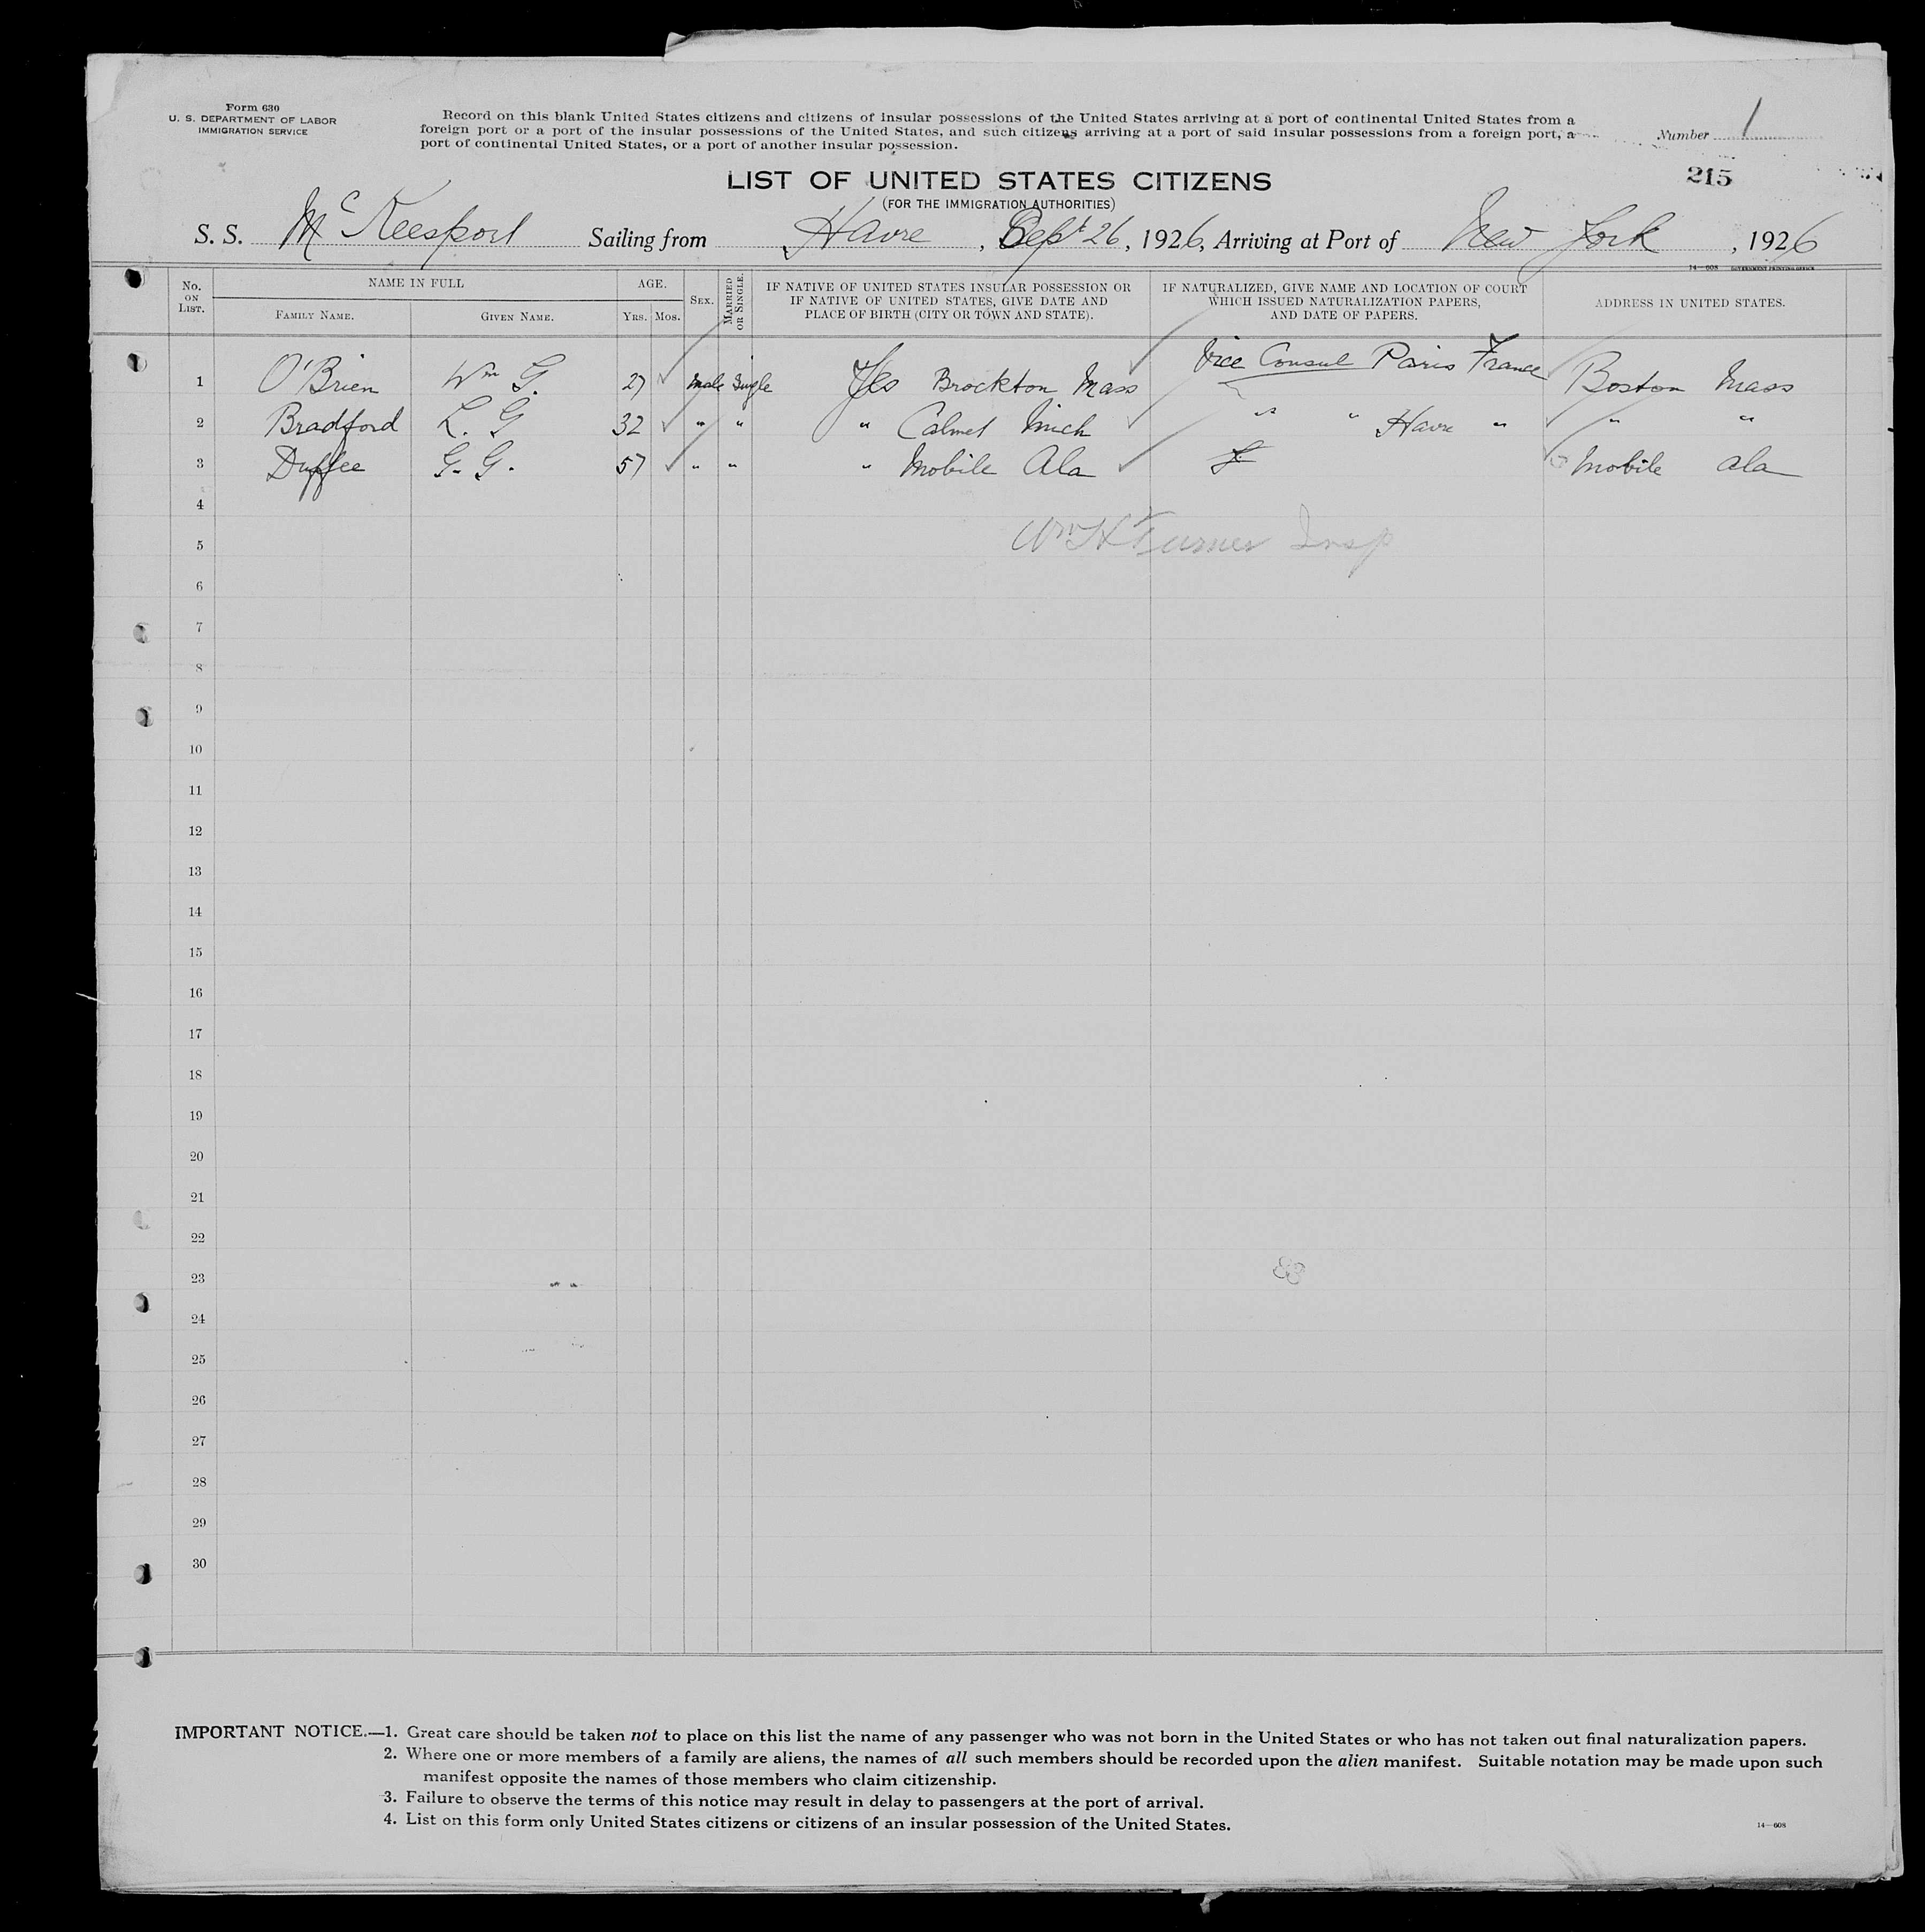 Form 630
U. S. DEPARTMENT OF LABOR
IMMIGRATION SERVICE
Record on this blank United States citizens and citizens of insular possessions of the United States arriving at a port of continental United States from a
foreign port or a port of the insular possessions of the United States, and such citizens arriving at a port of said insular possessions from a foreign port, a
port of continental United States, or a port of another insular possession.
Number 1
215
LIST OF UNITED STATES CITIZENS
(FOR THE IMMIGRATION AUTHORITIES)
S. S. McKeesport Sailing from Havre, Sept 26, 1926, Arriving at Port of New York, 1926
14—608 GOVERNMENT PRINTING OFFICE
No. ON LIST. NAME IN FULL FAMILY NAME. GIVEN NAME. AGE. YRS. MOS. SEX. MARRIED OR SINGLE. IF NATIVE OF UNITED STATES INSULAR POSSESSION OR IF NATIVE OF UNITED STATES, GIVE DATE AND PLACE OF BIRTH (CITY OR TOWN AND STATE). IF NATURALIZED, GIVE NAME AND LOCATION OF COURT WHICH ISSUED NATURALIZATION PAPERS, AND DATE OF PAPERS. ADDRESS IN UNITED STATES.
1 O'Brien Wm G. 27 Male Single Yes Brockton Mass Vice Consul Paris France Boston Mass
2 Bradford L. G 32 " " " Calmet Mich " " Havre " " "
3 Duffee G. G. 57 " " " Mobile Ala Mobile Ala
4
Wm H Turner Insp
5
6
7
8
9
10
11
12
13
14
15
16
17
18
19
20
21
22
23
24
25
26
27
28
29
30
IMPORTANT NOTICE.—1. Great care should be taken not to place on this list the name of any passenger who was not born in the United States or who has not taken out final naturalization papers.
2. Where one or more members of a family are aliens, the names of all such members should be recorded upon the alien manifest. Suitable notation may be made upon such
manifest opposite the names of those members who claim citizenship.
3. Failure to observe the terms of this notice may result in delay to passengers at the port of arrival.
4. List on this form only United States citizens or citizens of an insular possession of the United States.
14—608